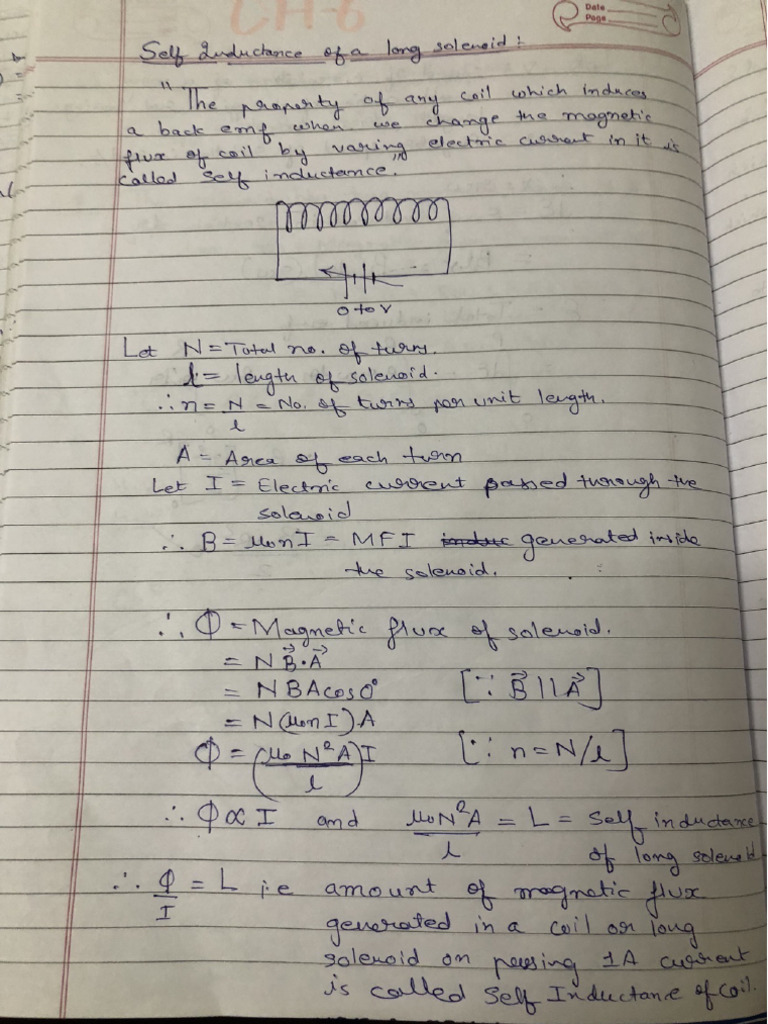 CH-6
Date
Page
Self Inductance of a long solenoid :
" The property of any coil which induces
a back emf when we change the magnetic
flux of coil by varing electric current in it is
called self inductance. "
0 to V
Let N = Total no. of turns.
l = length of solenoid.
∴ n = N/l = No. of turns per unit length.
A = Area of each turn
Let I = Electric current passed through the
solenoid
∴ B = μ₀nI = MFI generated inside
the solenoid.
∴ Φ = Magnetic flux of solenoid.
= N B⃗·A⃗
= NBAcos0° [∵ B⃗ || A⃗]
= N(μ₀nI)A
Φ = (μ₀N²A/l)I [∵ n = N/l]
∴ Φ ∝ I and μ₀N²A/l = L = Self inductance
of long solenoid
∴ Φ/I = L i.e amount of magnetic flux
generated in a coil or long
solenoid on passing 1A current
is called Self Inductance of coil.